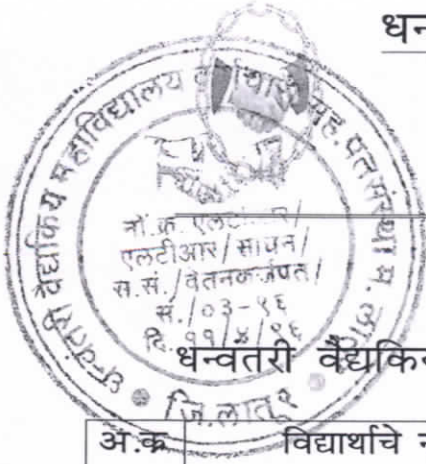 धन
धन्वंतरी वैद्यकिय महाविद्यालय कर्मचारी सह. पतसंस्था म.
नों.क. एलटी
एलटीआर/सीपन/
स.सं./वेतनकर्जपत/
सं./०३-९६
दि. ११/४/९६
जि.लातूर
धन्वंतरी वैद्यकिय
अ.क्र विद्यार्थाचे